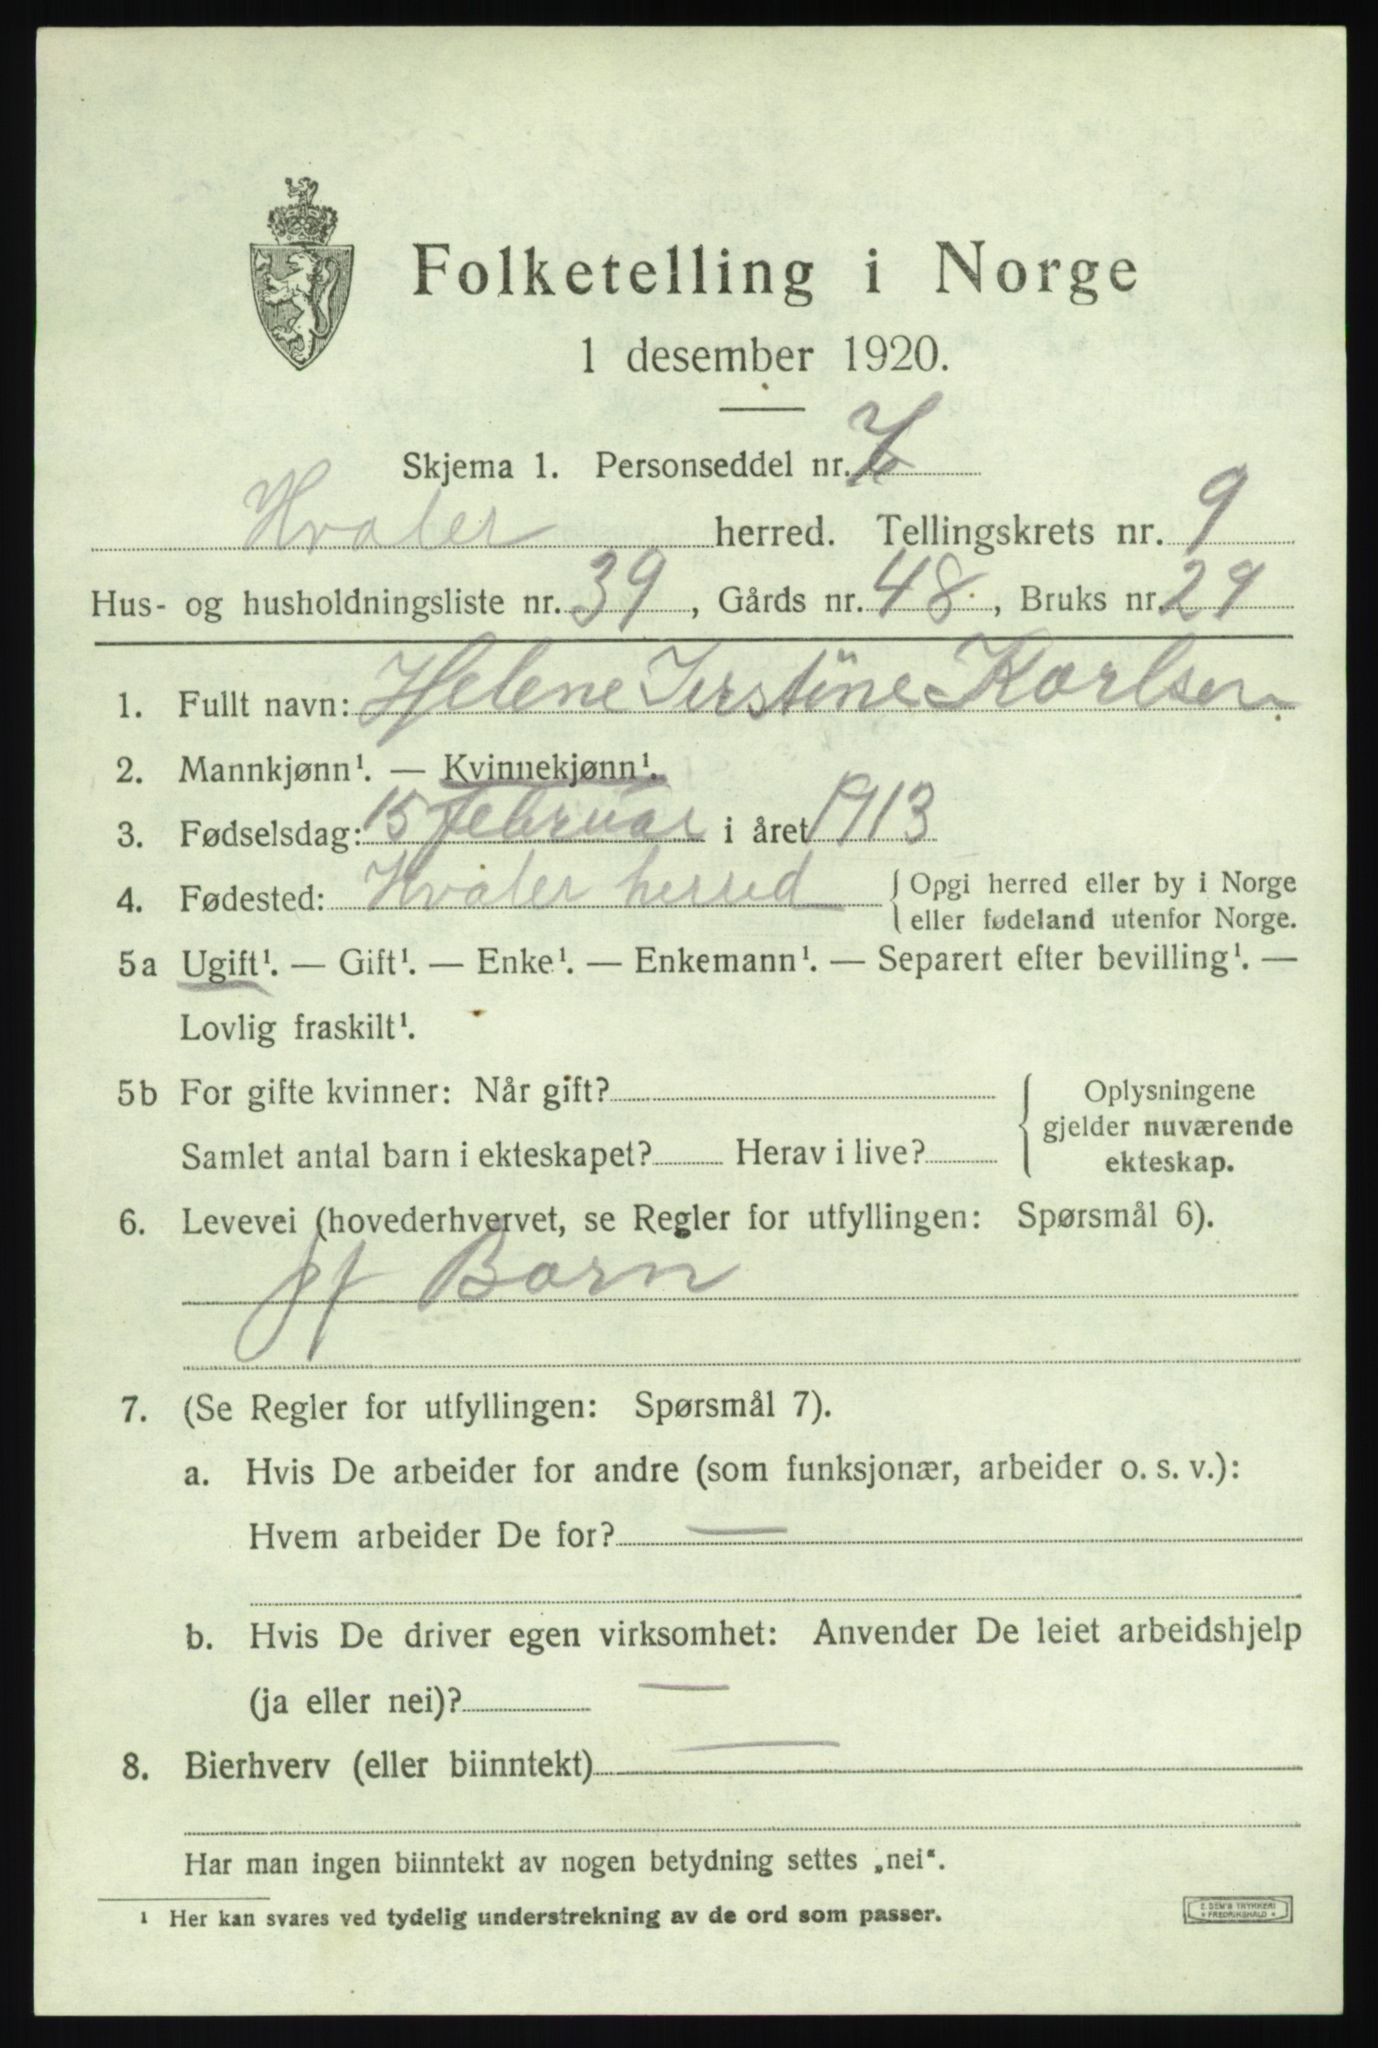 Folketelling i Norge
1 desember 1920.
Skjema 1. Personseddel nr.
Hvaler herred. Tellingskrets nr. 9
Hus- og husholdningsliste nr. 39, Gårds nr. 48, Bruks nr. 29
1. Fullt navn: Helene Karlsen
2. Mannkjønn¹. — Kvinnekjønn¹.
3. Fødselsdag: 15 februar i året 1913
4. Fødested: Hvaler herred { Opgi herred eller by i Norge
eller fødeland utenfor Norge.
5a Ugift¹. — Gift¹. — Enke¹. — Enkemann¹. — Separert efter bevilling¹. —
Lovlig fraskilt¹.
5b For gifte kvinner: Når gift?
Samlet antal barn i ekteskapet? Herav i live?
{ Oplysningene
gjelder nuværende
ekteskap.
6. Levevei (hovederhvervet, se Regler for utfyllingen: Spørsmål 6).
Barn
7. (Se Regler for utfyllingen: Spørsmål 7).
a. Hvis De arbeider for andre (som funksjonær, arbeider o. s. v.):
Hvem arbeider De for? —
b. Hvis De driver egen virksomhet: Anvender De leiet arbeidshjelp
(ja eller nei)? —
8. Bierhverv (eller biinntekt) —
Har man ingen biinntekt av nogen betydning settes „nei“.
¹ Her kan svares ved tydelig understrekning av de ord som passer.
E. SEM'S TRYKKERI
* FREDRIKSHALD *